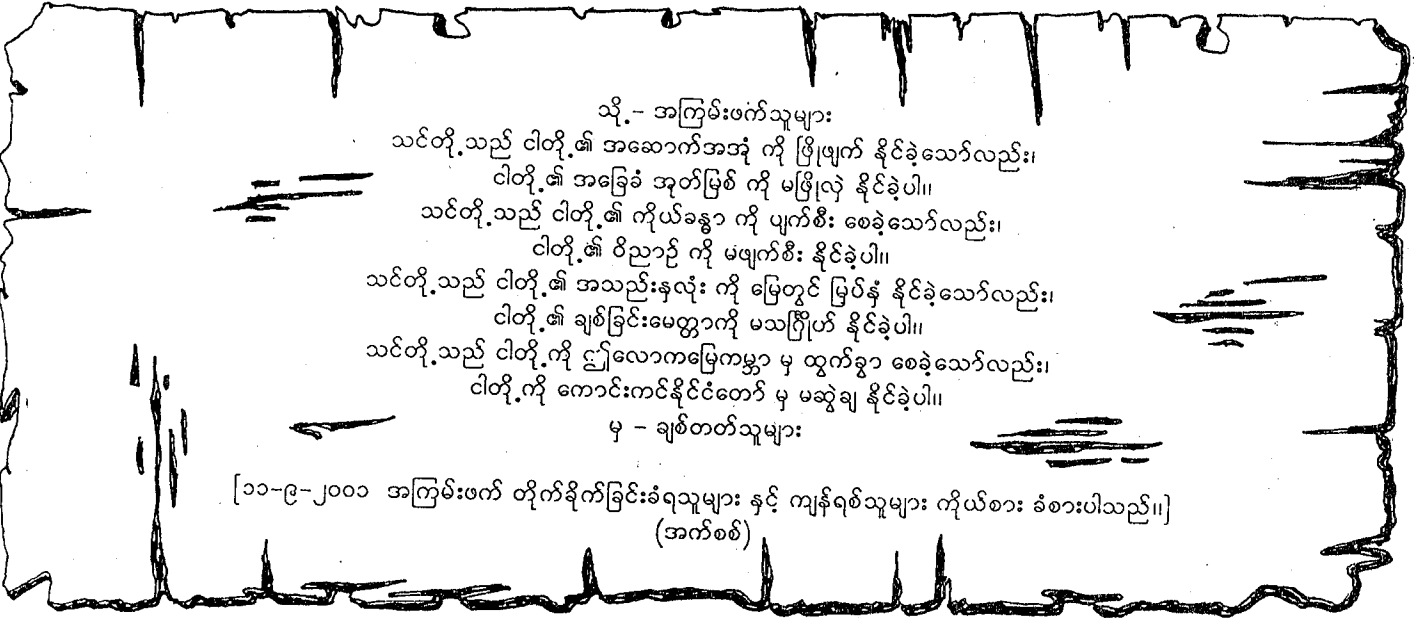 သို့ – အကြမ်းဖက်သူများ
သင်တို့သည် ငါတို့၏ အဆောက်အအုံ ကို ဖြိုဖျက် နိုင်ခဲ့သော်လည်း၊
ငါတို့၏ အခြေခံ အုတ်မြစ် ကို မဖြိုလှဲ နိုင်ခဲ့ပါ။
သင်တို့သည် ငါတို့၏ ကိုယ်ခန္ဓာ ကို ပျက်စီး စေခဲ့သော်လည်း၊
ငါတို့၏ ဝိညာဉ် ကို မဖျက်စီး နိုင်ခဲ့ပါ။
သင်တို့သည် ငါတို့၏ အသည်းနှလုံး ကို မြေတွင် မြှပ်နှံ နိုင်ခဲ့သော်လည်း၊
ငါတို့၏ ချစ်ခြင်းမေတ္တာကို မသင်္ဂြိုဟ် နိုင်ခဲ့ပါ။
သင်တို့သည် ငါတို့ကို ဤလောကမြေကမ္ဘာ မှ ထွက်ခွာ စေခဲ့သော်လည်း၊
ငါတို့ကို ကောင်းကင်နိုင်ငံတော် မှ မဆွဲချ နိုင်ခဲ့ပါ။
မှ – ချစ်တတ်သူများ
[၁၁-၉-၂၀၀၁ အကြမ်းဖက် တိုက်ခိုက်ခြင်းခံရသူများ နှင့် ကျန်ရစ်သူများ ကိုယ်စား ခံစားပါသည်။]
(အက်စစ်)